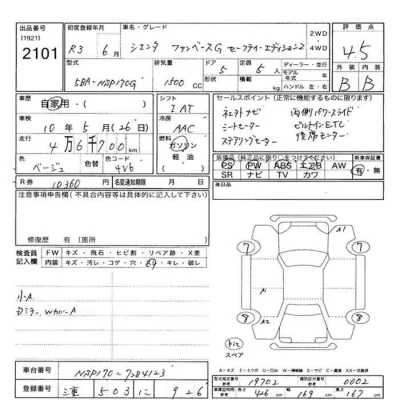 出品番号 [1921] 2101
初度登録年月 R3 6月
車名・グレード シエンタ ファンベースG セーフティーエディション2
2WD・4WD
評価点 4.5
型式 5BA-NSP170G
排気量 1500 CC
ドア 5
形状
定員 5
積載量 kg
ディーラー・並行
モデル年式 年
ハンドル 左・右
外装 B
内装 B
車歴 自家用・( )
車検 10年5月(26日)
走行 4万6千700 km
シフト I AT
冷房 AAC
燃料 ガソリン 軽油 ( )
色 ベージュ
色替
色コード 4V6
R券 10360 円
名変通知期限 月 日
セールスポイント(正常に機能するものに限ります)
ネットナビ 両側パワースライド
シートヒーター ビルトインETC
ステアリングヒーター
装備品(純正品に限り○をつけてください)
PS PW ABS エアB AW
SR ナビ TV カワ
新車保証書 有・無
後日品
注意事項申告欄(不具合内容等は具体的に記入して下さい)
修復歴 有 [箇所
検査員記入欄
FW キズ・飛石・ヒビ割・リペア跡・X要
内装 キズ・汚レ・コゲ・穴・キレ・破レ
小A
スペア
車台番号 NSP170-7284123
登録番号 三重 503 に 926
型式指定番号 19702
類別区分番号 0002
長さ 426 cm
幅 169 cm
高さ 167 cm